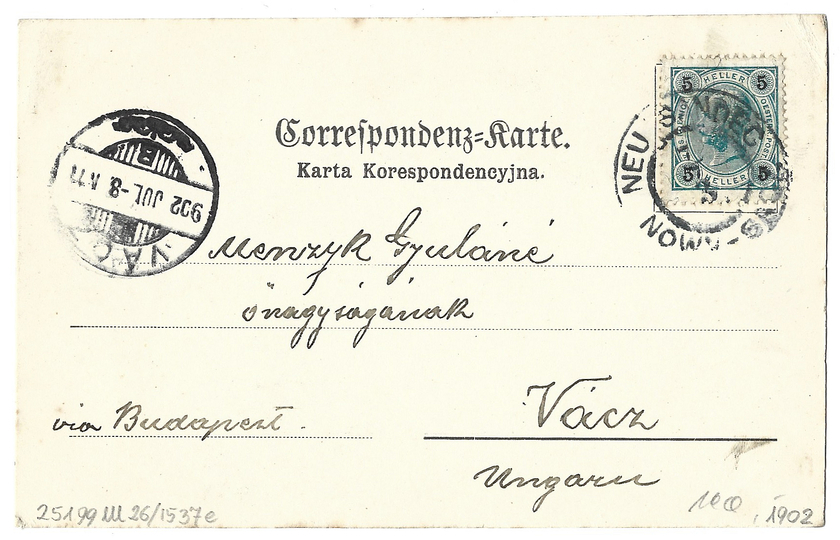 5 HELLER 5
5 HELLER 5
NEU SANDEC
NOWY-SĄCZ
Correspondenz=Karte.
Karta Korespondencyjna.
VÁCZ
902 JUL.-8. N.11
Menzyk Gyuláné
őnagyságának
Vácz
via Budapest.
Ungarn
25199 III 26/1537e
1902